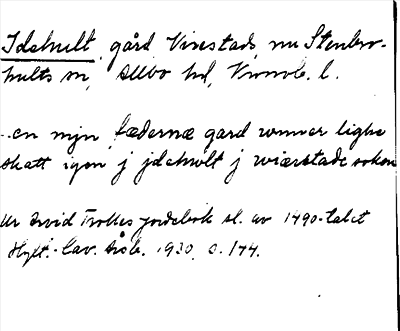 Idehult gård Virestads, nu Stenbro-
hults sn, Allbo hd, Kronob. l.
..en myn fædernæ gard som er lighe
skatt igen j jdehwlt j wiærstade soken
Ur Arvid Trolles jordebok sl. av 1490-talet
Hylt.-Cav. årsb. 1930 s. 174.